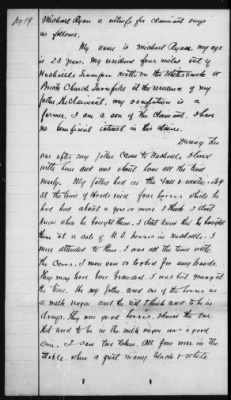 pg. 19
Michael Ryan a witness for claimant says
as follows.
My name is Michael Ryan, my age
is 23 years. My residence four miles out of
Nashville Tennessee on the
Creek Church Turnpike at the residence of my
father the Claimant, my occupation is a
farmer, I am a son of the claimant. I have
no beneficial interest in this claim.
During the
war after my father came to Nashville I lived
with him and was about home all the time
nearly. My father had in the fall & winter 1864
at the time of Hoods raid four horses which he
had had about a year or more I think. I don't
know when he bought them. I don't know that he bought
them at a sale of U.S. horses in Nashville. I
never attended to this. I was all the time with
the cows. I never saw or looked for any brands.
They may have been branded. I was but young at
the time. He my father, used one of the horses in
a milk wagon and the rest I think used to be in
drays. They were good horses. I know the one
that used to be in the milk wagon was a good
one. I saw two taken. All four were in the
stable. When a girl black & white